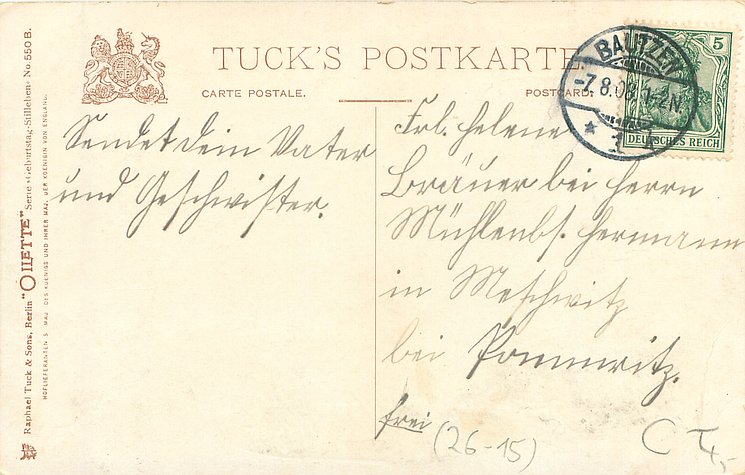 TUCK'S POSTKARTE
CARTE POSTALE.
POSTCARD.
BAUTZEN
-7.8.09.1-2N.
* 1
5
DEUTSCHES REICH
Sendet dein Vater
und Geschwister.
Frl. Helene
Bräuer bei Herrn
Mühlenbs. Hermann
in Meschwitz
bei Pommritz.
frei
(26-15)
Raphael Tuck & Sons, Berlin "OILETTE" Serie »Geburtstag-Stilleben« No. 550 B.
HOFLIEFERANTEN S. MAJ. DES KOENIGS UND IHRER MAJ. DER KOENIGIN VON ENGLAND.